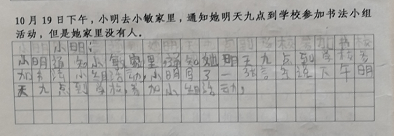 10 月 19 日下午，小明去小敏家里，通知她明天九点到学校参加书法小组
活动，但是她家里没有人。
小明：
小明通知小敏家里通知她明天九点到
加 法小组活动，小明 了一 下午明
天九点到学校 加小组活动。